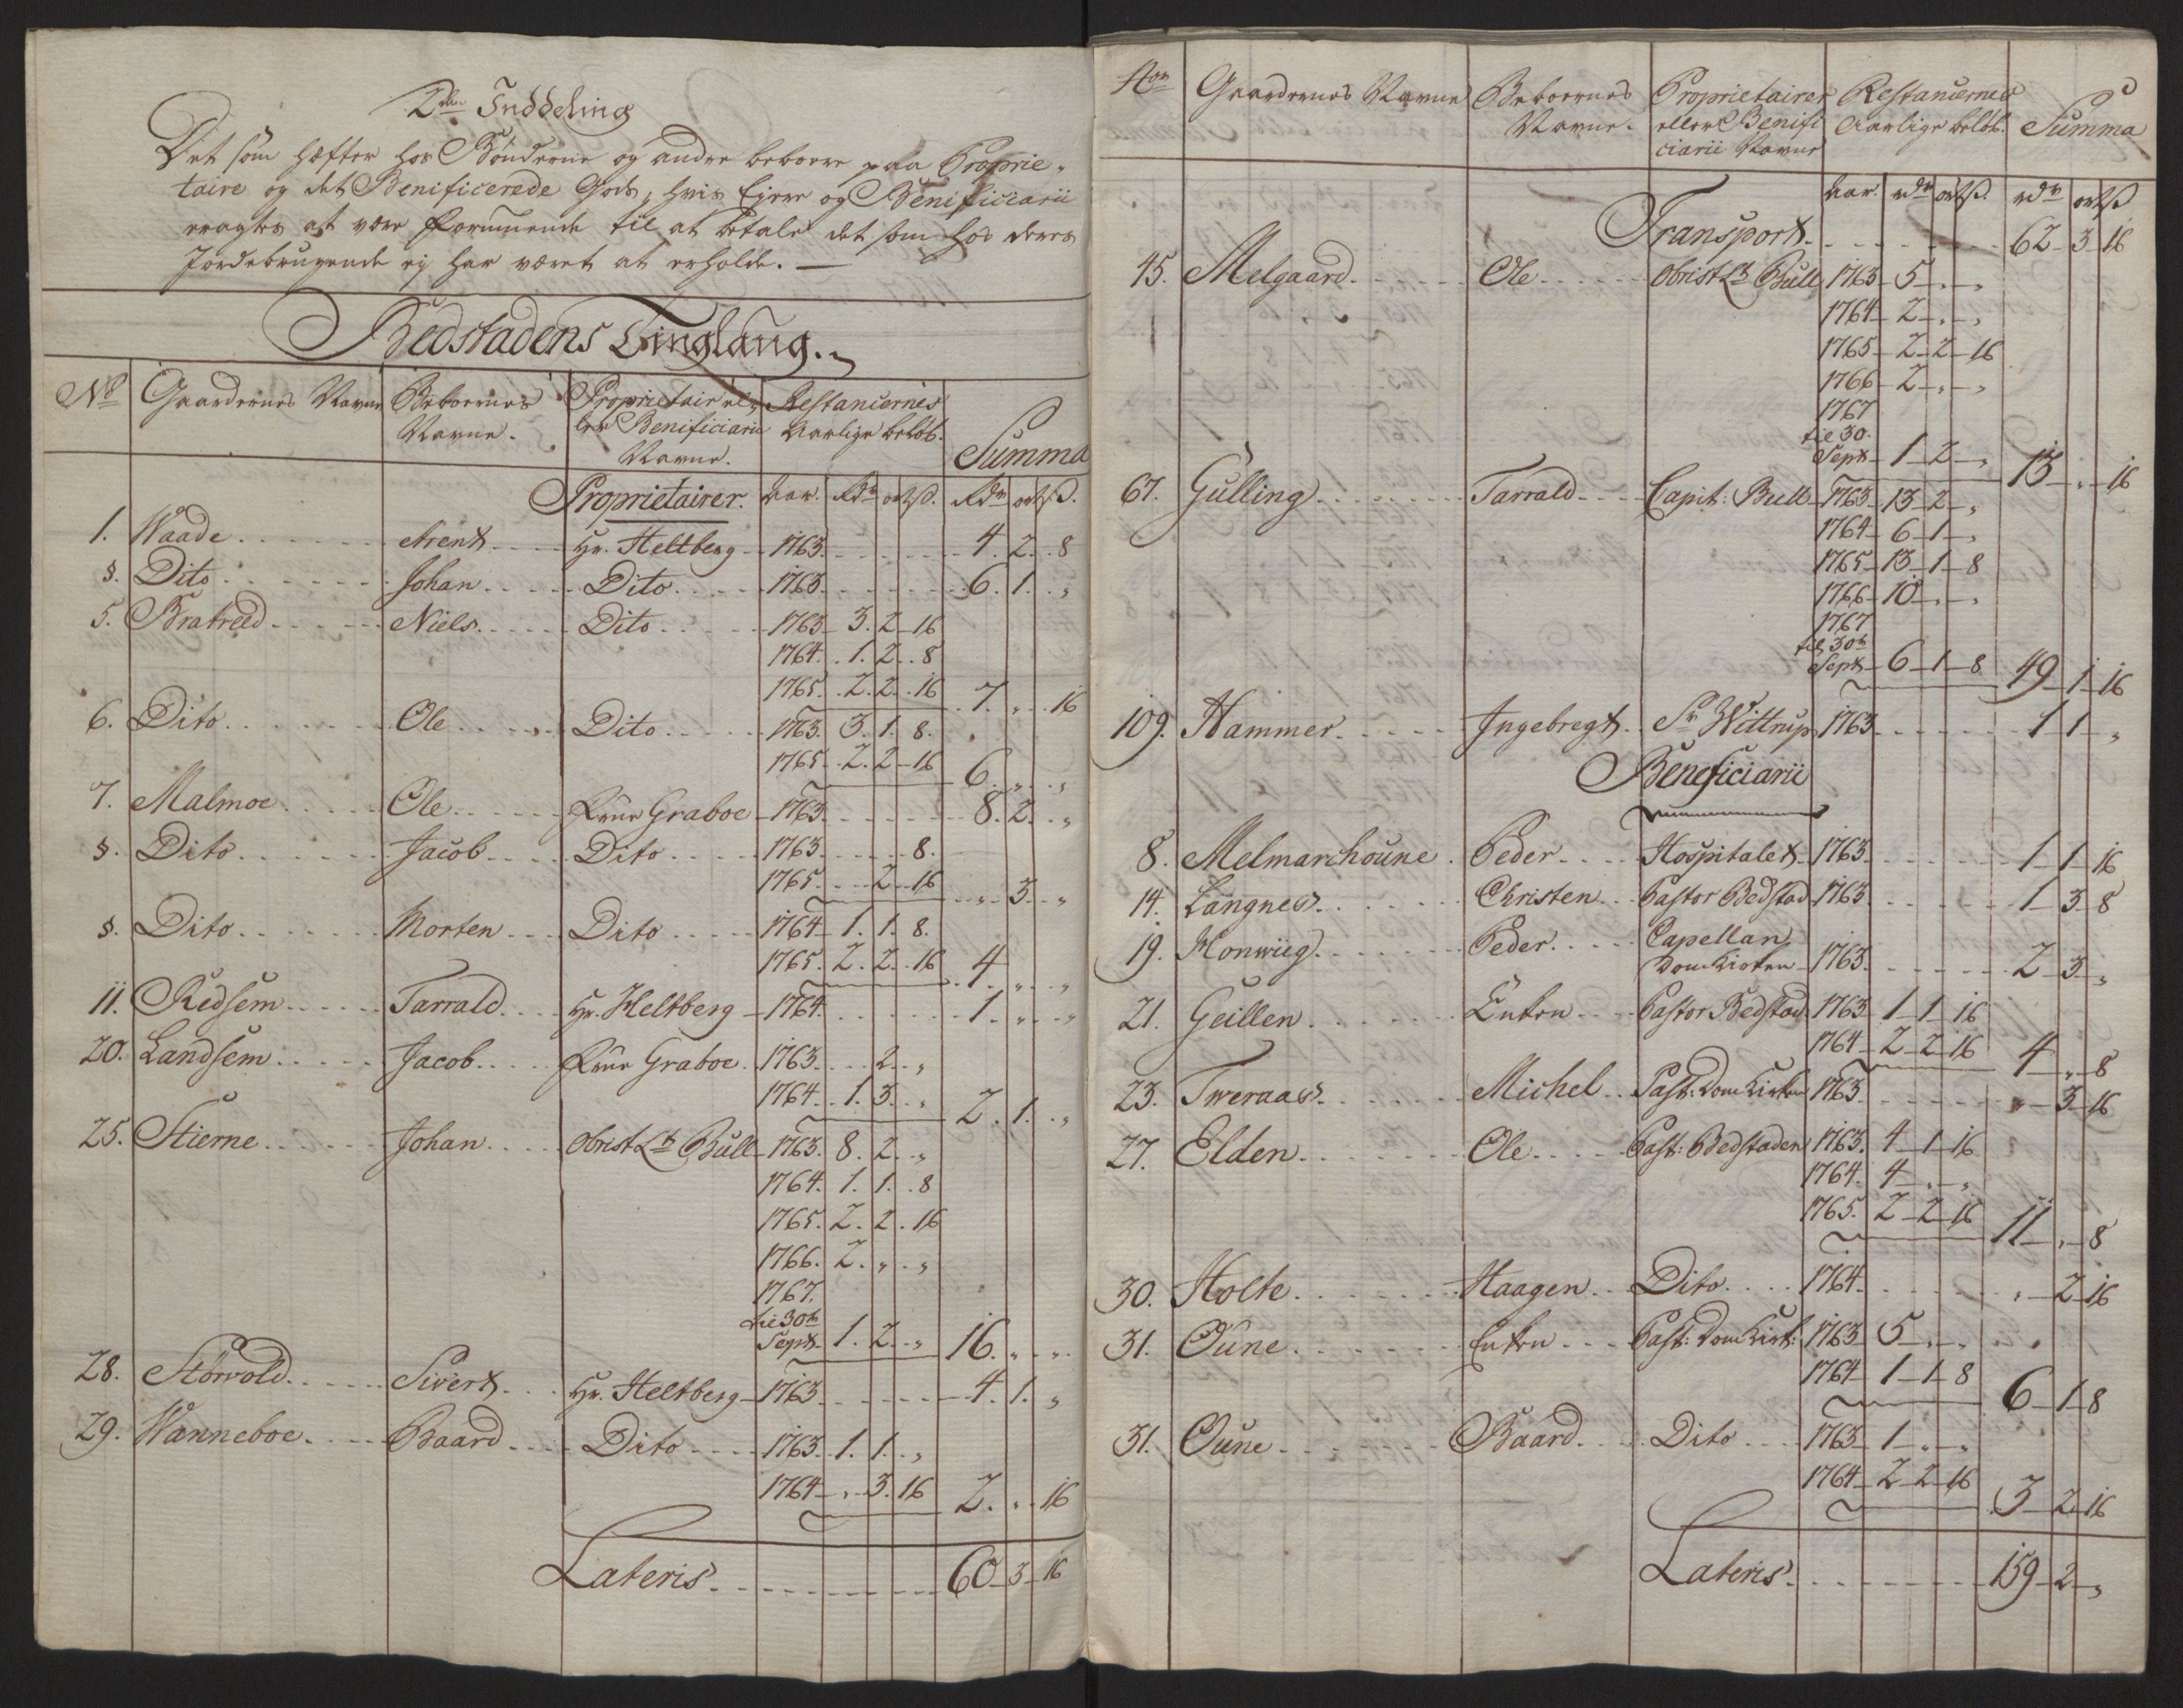 2den Inddeling
Det som hæfter hos Bønderne og andre beboere paa Proprie-
taire og det Benificerede Gods, hvis Ejere og Benificiarii
eragtes at være formuende til at betale det som hos deres
Jordebrugende ej har været at erholde. —
Bedstadens Tinglaug.
No Gaardernes Navne Beboernes Navne. Proprietair el- ler Benificiarii Navne. Restancernes Aarlige beløb. Summa
Proprietairer. Aar. Rdr ort ß. Rdr ort ß.
1. Waade Arent Hr. Heltberg 1763 4. 2. 8
s. Dito Johan Dito 1763 6. 1. „
5. Bratreed Niels Dito 1763 3. 2 16
1764. 1. 2. 8
1765. 2. 2. 16 7. „ 16
6. Dito Ole Dito 1763. 3. 1. 8.
1765. 2. 2 16 6. „ „
7. Malmoe Ole Frue Graboe 1763 8. 2. „
s. Dito Jacob Dito 1763 8.
1765. 2 16 „ 3. „
s. Dito Morten Dito 1764 1. 1. 8.
1765. 2. 2. 16 4 „ „
11. Redsem Tarrald Hr. Heltberg 1764. 1. „ „
20. Landsem Jacob Frue Graboe 1763 2 „
1764. 1. 3. „ 2. 1. „
25. Stierne Johan Obrist Lt Bull 1763. 8. 2. „
1764. 1. 1. 8
1765. 2. 2. 16
1766. 2. „ „
1767.
til 30te
Sept. 1. 2. „ 16. „ „
28. Storvold Sivert Hr. Heltberg 1763 4. 1. „
29. Wanneboe Baard Dito 1763. 1. 1. „
1764 „ 3. 16 2. „ 16
Lateris 60 3 16
No Gaardernes Navne Beboernes Navne. Proprietairer eller Benifi ciarii Navne Restancernes Aarlige beløb. Summa
Aar. rdr ort ß. rdr ort ß
Transport 62 3 16
45. Melgaard Ole Obrist Lt Bull 1763 5 „ „
1764 2 „ „
1765 2 2 16
1766 2 „ „
1767
til 30.
Sept 1 2 „ 13 „ 16
67. Gulling Tarrald Capit: Bull 1763 13 2 „
1764 6 1 „
1765 13 1 8
1766 10 „ „
1767
til 30te
Sept 6 1 8 49 1 16
109. Hammer Ingebregt Sr Wittrup 1763 1 1 „
Beneficiarii
8. Melmarchoune Peder Hospitalet 1763 1 1 16
14. Langnes Christen Pastor Bedstad 1763 1 3 8
19. Monwiig Peder Capellan
Domkirken 1763 2 3 „
21. Geillen Enken Pastor Bedstad 1763 1 1 16
1764 2 2 16 4 „ 8
23. Tweraas Michel Past: Domkirken 1763 „ 3 16
27. Elden Ole Past: Bedstaden 1763. 4 1 16
1764. 4 „ „
1765. 2 2 16 11 „ 8
30. Holte Haagen Dito 1764 „ 2 16
31. Oune Enken Past: Domkirk: 1763 5 „ „
1764 1 1 8 6 1 8
31. Oune Baard Dito 1763 1 „ „
1764 2 2 16 3 2 16
Lateris 159 2 „